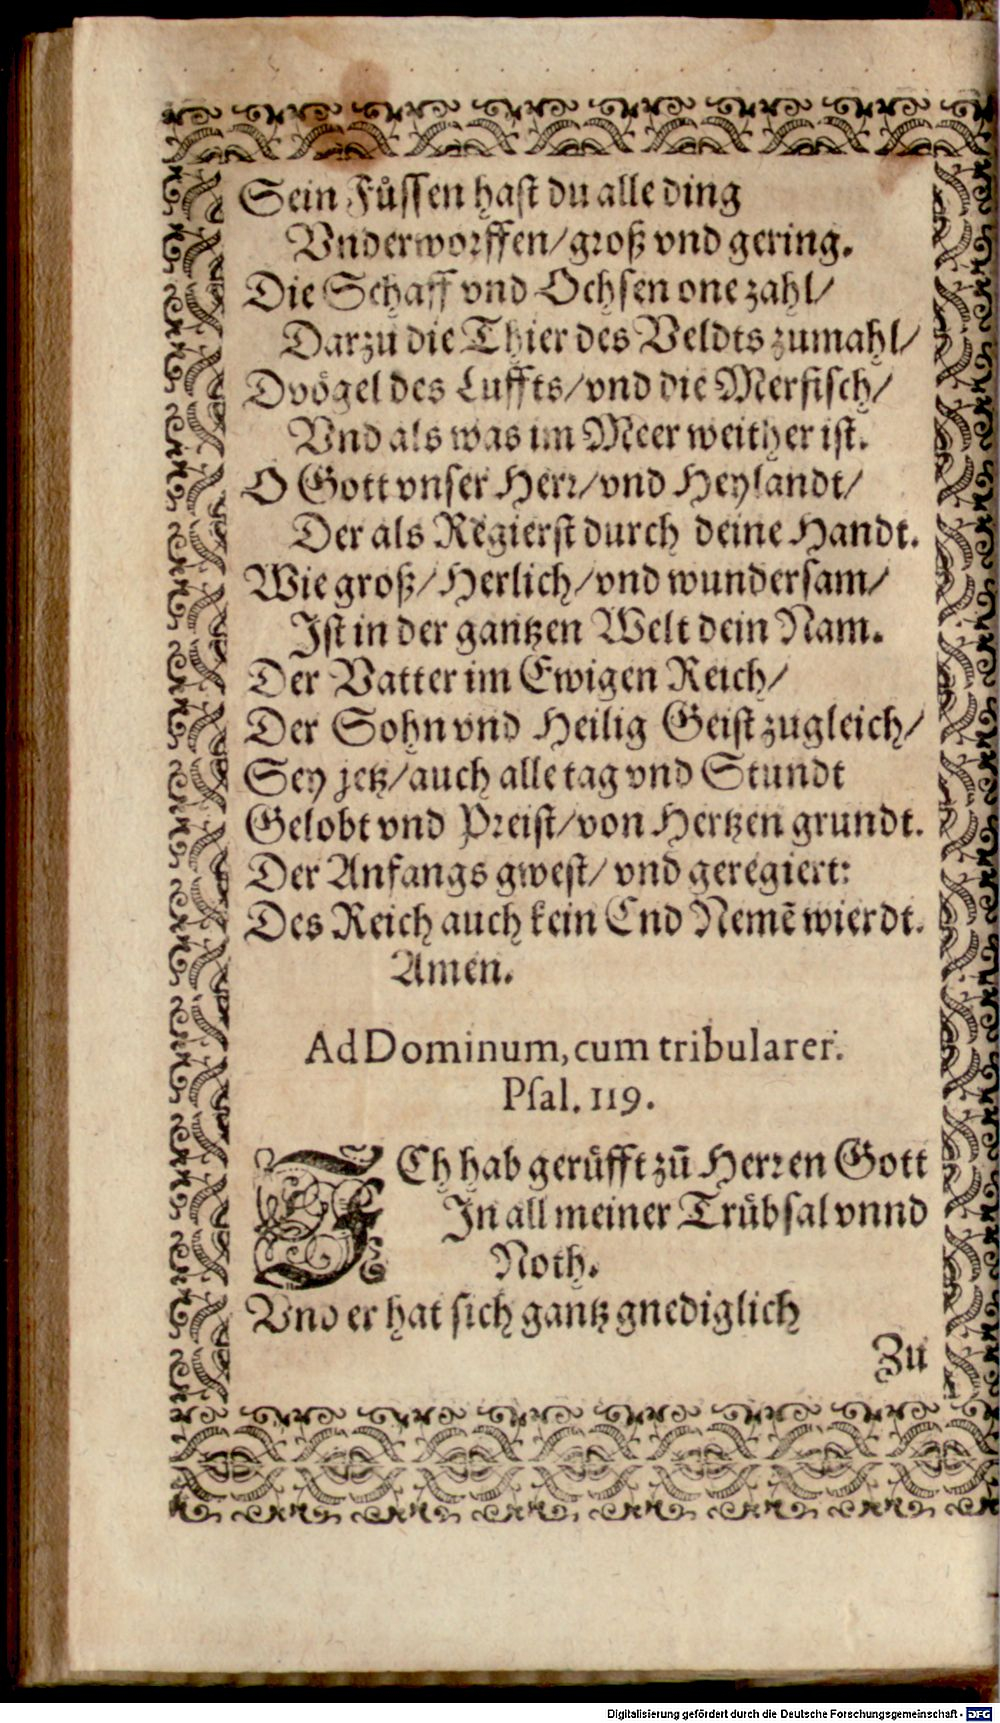 Sein Fuͤſſen haſt du alle ding
Vnderworffen/groß vnd gering.
Die Schaff vnd Ochſen one zahl/
Darzu die Thier des Veldts zumahl/
Dvoͤgel des Luffts/vnd die Merfiſch/
Vnd als was im Meer weither iſt.
O Gott vnſer Herr/vnd Heylandt/
Der als Regierſt durch deine Handt.
Wie groß/Herlich/vnd wunderſam/
Iſt in der gantzen Welt dein Nam.
Der Vatter im Ewigen Reich/
Der Sohn vnd Heilig Geiſt zugleich/
Sey jetz/auch alle tag vnd Stundt
Gelobt vnd Preiſt/von Hertzen grundt.
Der Anfangs gweſt/ vnd geregiert:
Des Reich auch kein End Nemē wierdt.
Amen.
Ad Dominum, cum tribularer.
Pſal. 119.
ICh hab geruͤfft zů Herren Gott
In all meiner Truͤbſal vnnd
Noth.
Vnd er hat ſich gantz gnediglich
Zu
Digitalisierung gefördert durch die Deutsche Forschungsgemeinschaft - DFG